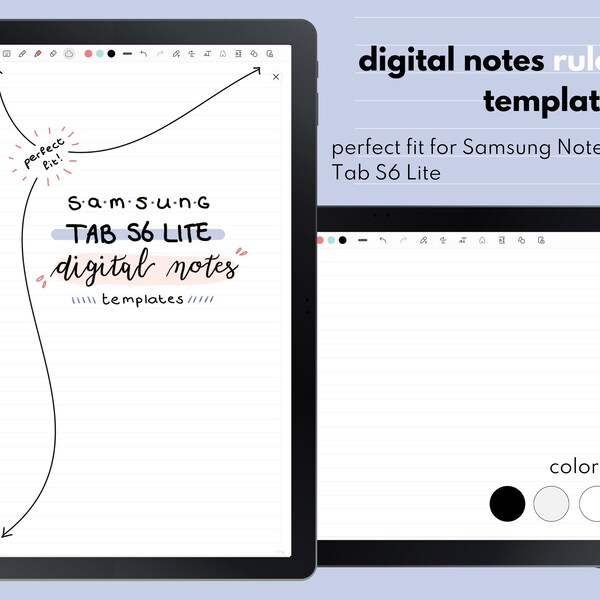 perfect
fit!
S·a·m·s·u·n·G
TAB S6 LITE
digital notes
templates
digital notes
perfect fit for Samsung Note
Tab S6 Lite
color